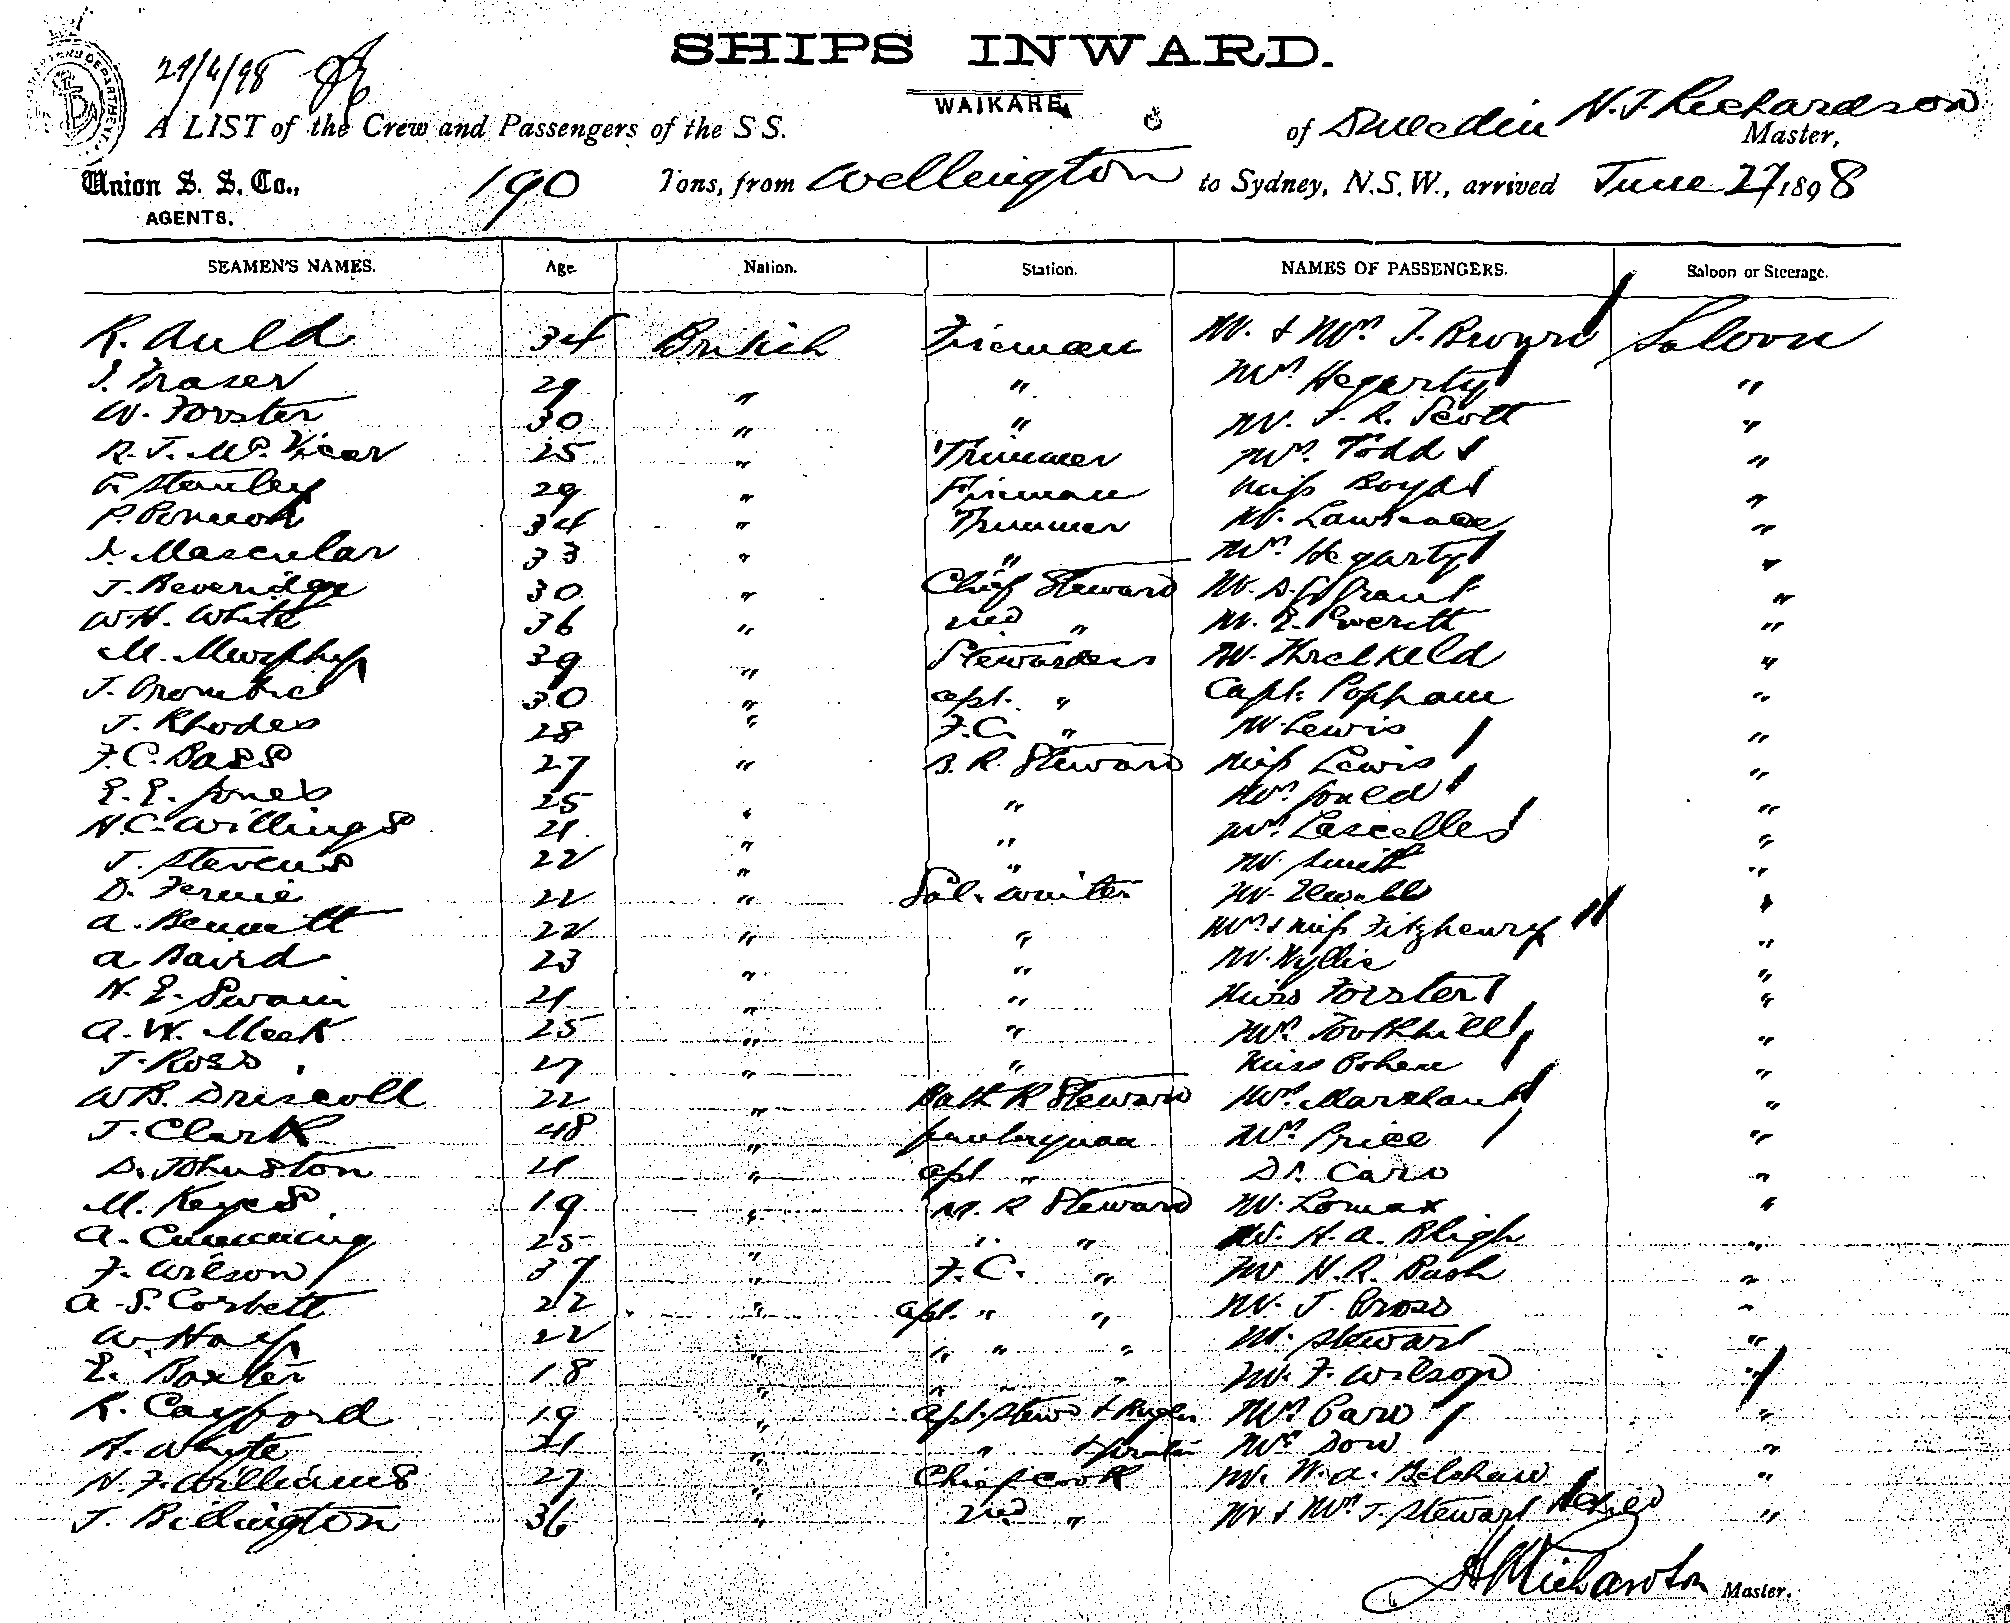 SHIPS INWARD.
WAIKARE
A LIST of the Crew and Passengers of the S S. of Dunedin N. J. Richardson Master,
Union S. S. Co., 190 Tons, from Wellington to Sydney, N.S.W., arrived June 27 1898
AGENTS.
SEAMEN'S NAMES. Age. Nation. Station. NAMES OF PASSENGERS. Saloon or Steerage.
R. Auld 34 British Fireman Mr. & Mrs. J. Saloon
J. Fraser 29 " " Mrs Hegarty "
W. Forster 30 " " Mr. F. R. Scott "
R. J. McVicar 25 " Trimmer Mrs. Todd "
Stanley 29 " Fireman Miss Boyd "
P. 34 " Trimmer Mr. Lawrence "
J. Mascular 33 " " Mrs Hegarty "
J. Beveridge 30 " Chief Steward Mr. D. G. Grant "
W. H. White 36 " 2nd " Mr. E. Everett "
M. Murphy 39 " Stewardess Mr. Threlkeld "
J. Crombie 30 " apt. " Capt. Popham "
J. Rhodes 28 " F.C. " Mr Lewis "
F. C. Bass 27 " B. R. Steward Miss Lewis "
E. E. Jones 25 " " Mrs "
H. C. Willings 21 " " Mrs Lascelles "
J. Stevens 22 " " Mr Smith "
D. Fernie 22 " Sal. Waiter Mr. "
A. Bennett 22 " " Mrs & Miss Fitzhenry "
A Baird 23 " " Mr. Wyllie "
H. E. Swain 21 " " Miss Forster "
A. W. Meek 25 " " Mrs. Toothill "
J. Ross 27 " " Miss "
W B. Driscoll 22 " Bath R Steward Mrs. Marsland "
J. Clark 48 " Pantryman Mrs. Price "
D. Johnston 21 " apt " Dr. Caro "
M. Keyes 19 " M. R Steward Mr. Lomax "
A. Cumming 25 " " " Mr. H. A. Bligh "
F. Wilson 37 " F.C. " Mr H. R. Bush "
A. S. Corbett 22 " apt. " " Mr. J. "
W. Hoey 22 " " " " Mr. Stewart "
E. Baxter 18 " " " " Mr. F. Wilson "
R. Cayford 19 " apt. Stewd & Mrs Caro "
A. Whyte 21 " " Mrs Dow "
H. F. Williams 27 " Chief Cook Mr. W. A. Belshaw "
J. Billington 36 " 2nd " Mr & Mrs J. Stewart & Child "
Richardson Master.